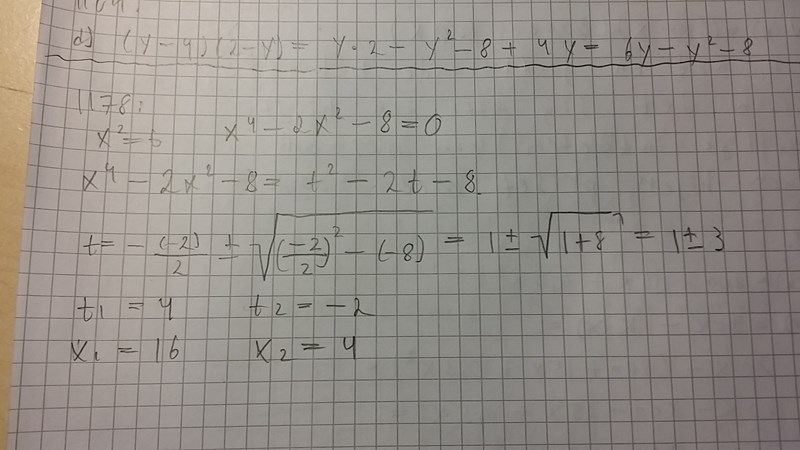 d) (y-4)(2-y) = y·2 - y² - 8 + 4y = 6y - y² - 8
1178:
x² = t x⁴ - 2x² - 8 = 0
x⁴ - 2x² - 8 = t² - 2t - 8
t = - (-2)/2 ± √((-2/2)² - (-8)) = 1 ± √(1+8) = 1 ± 3
t₁ = 4 t₂ = -2
x₁ = 16 x₂ = 4